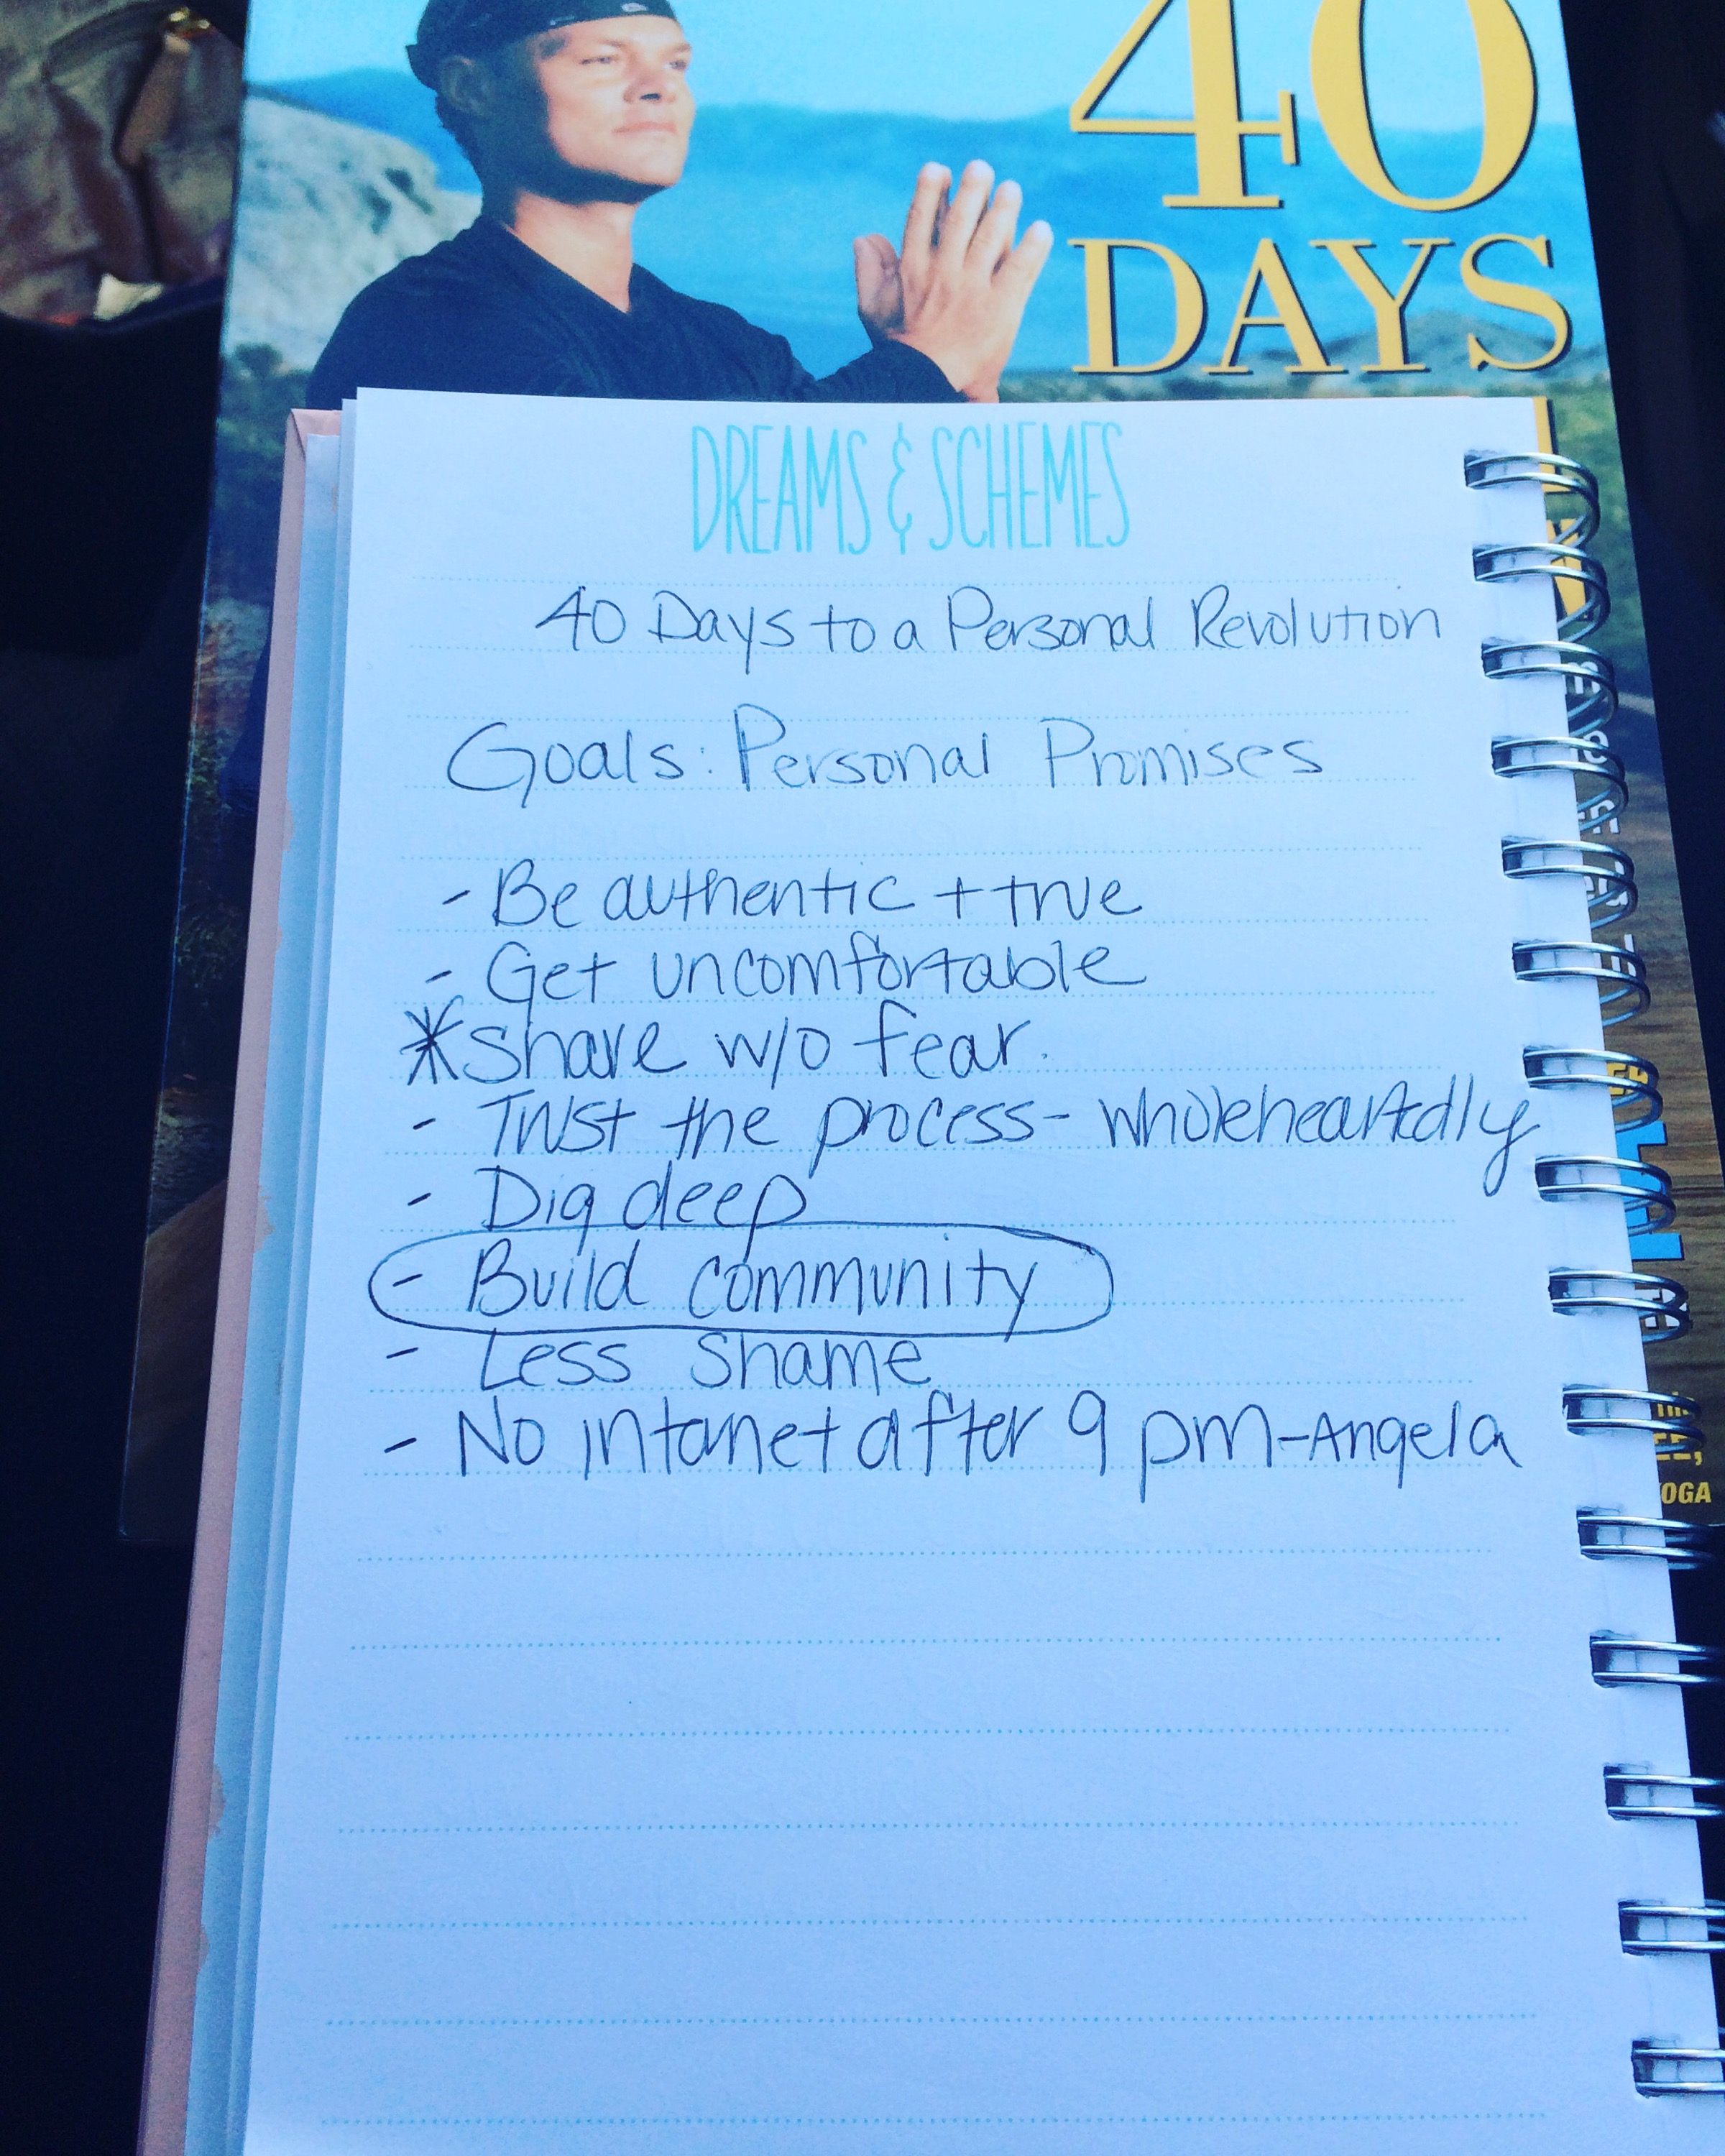 40
DAYS
DREAMS & SCHEMES
40 Days to a Personal Revolution
Goals: Personal Promises
- Be authentic + true
- Get uncomfortable
* Share w/o fear.
- Trust the process - wholeheartedly
- Dig deep
- Build community
- Less Shame
- No intanet after 9 pm - Angela
YOGA